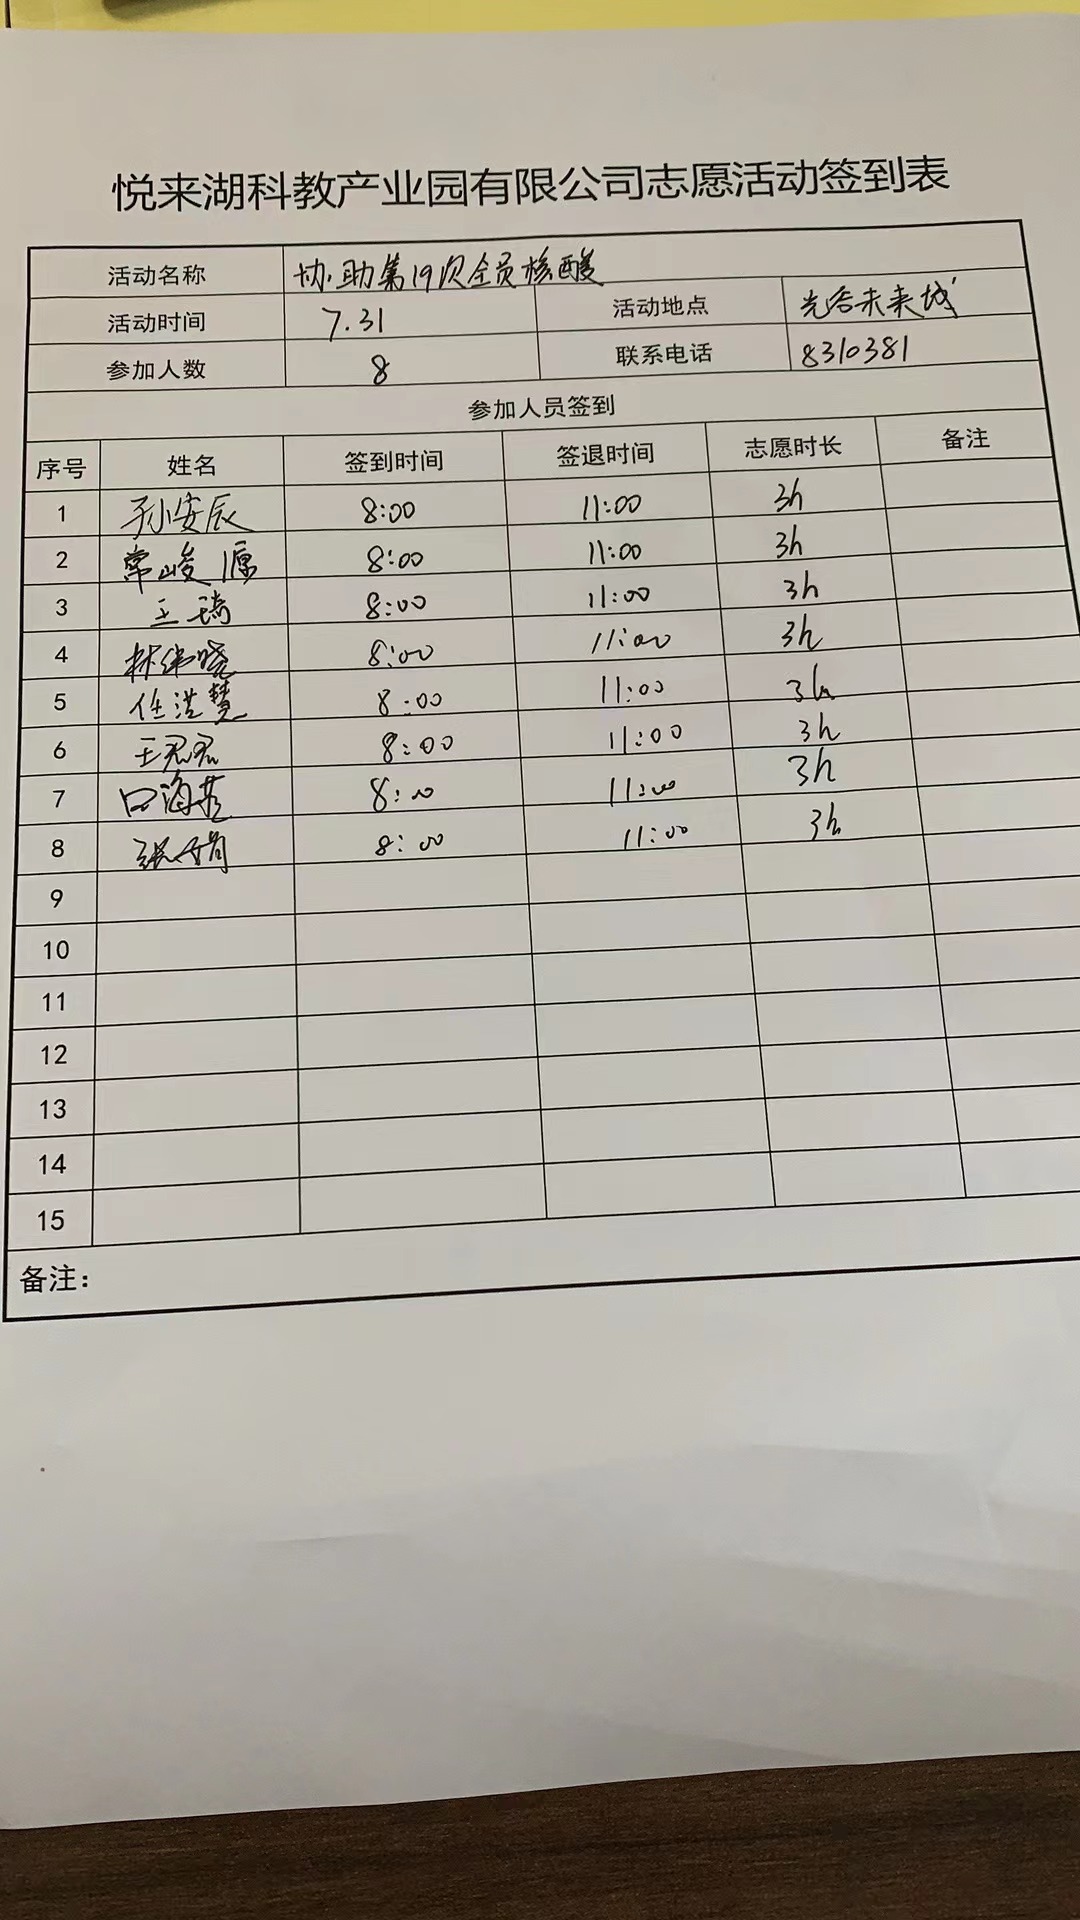 悦来湖科教产业园有限公司志愿活动签到表
活动名称 协助第19次全员核酸
活动时间 7.31 活动地点 光谷未来城
参加人数 8 联系电话 8310381
参加人员签到
序号 姓名 签到时间 签退时间 志愿时长 备注
1 孙安辰 8:00 11:00 3h
2 常峻源 8:00 11:00 3h
3 王瑞 8:00 11:00 3h
4 林伟晓 8:00 11:00 3h
5 任洪慧 8:00 11:00 3h
6 王君君 8:00 11:00 3h
7 海燕 8:00 11:00 3h
8 张 8:00 11:00 3h
9
10
11
12
13
14
15
备注：